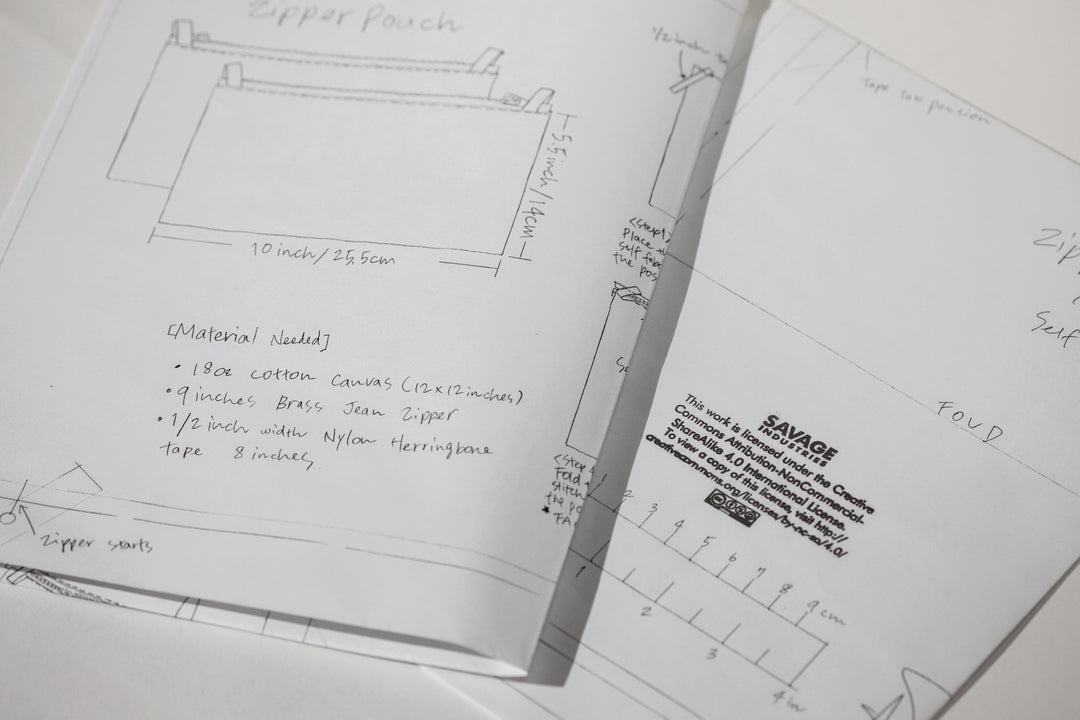 Zipper Pouch
5.5inch/14cm
10 inch/25.5cm
[Material Needed]
• 18oz cotton canvas (12x12inches)
• 9 inches Brass Jean Zipper
• 1/2 inch width Nylon Herringbone
tape 8 inches
Zipper starts
1/2 inch
<Step
Place
self fab
the pos
<Step
Fold
stitch
the po
* FA
Tape Tab position
Zip
Self
FOUD
SAVAGE
INDUSTRIES
This work is licensed under the Creative
Commons Attribution-NonCommercial-
ShareAlike 4.0 International License.
To view a copy of this license, visit http://
creativecommons.org/licenses/by-nc-sa/4.0/
1 2 3 4 5 6 7 8 9 cm
1 2 3 4 in